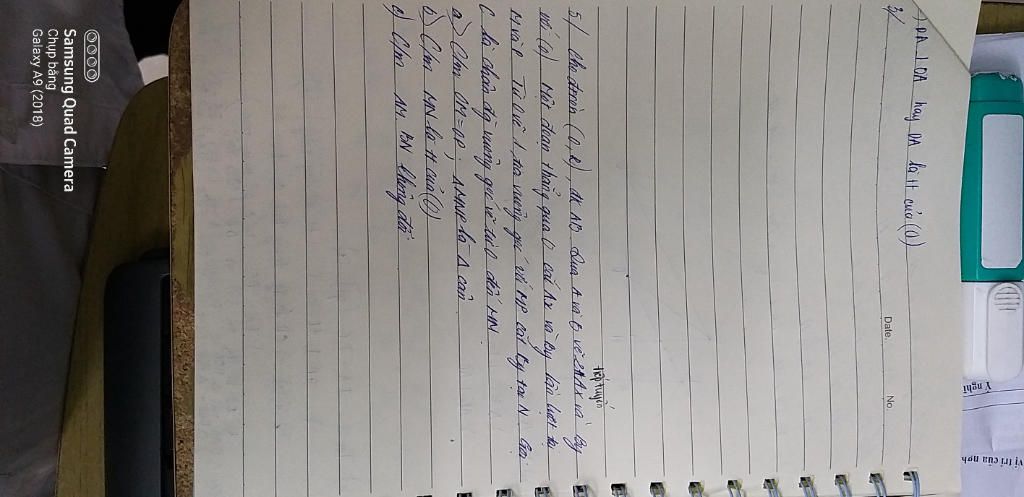 ) DA ⊥ OA hay DA là tt của (O)
2/
Date. No.
tiếp tuyến
5/ Cho đường (O,R), đk AB. Qua A và B vẽ 2 Ax và By
với (O). Một đường thẳng qua O cắt Ax và By lần lượt tại
M và P. Từ O vẽ 1 tia vuông góc với MP cắt By tại N. Gọi
C là chân đg vuông góc vẽ từ O đến MN.
a) Cm OM = OP, ΔMNP là Δ cân
b) Cm MN là tt của (O)
c) Cm AM. BN không đổi
Ý nghĩ
vị trí của ngh
Samsung Quad Camera
Chụp bằng
Galaxy A9 (2018)